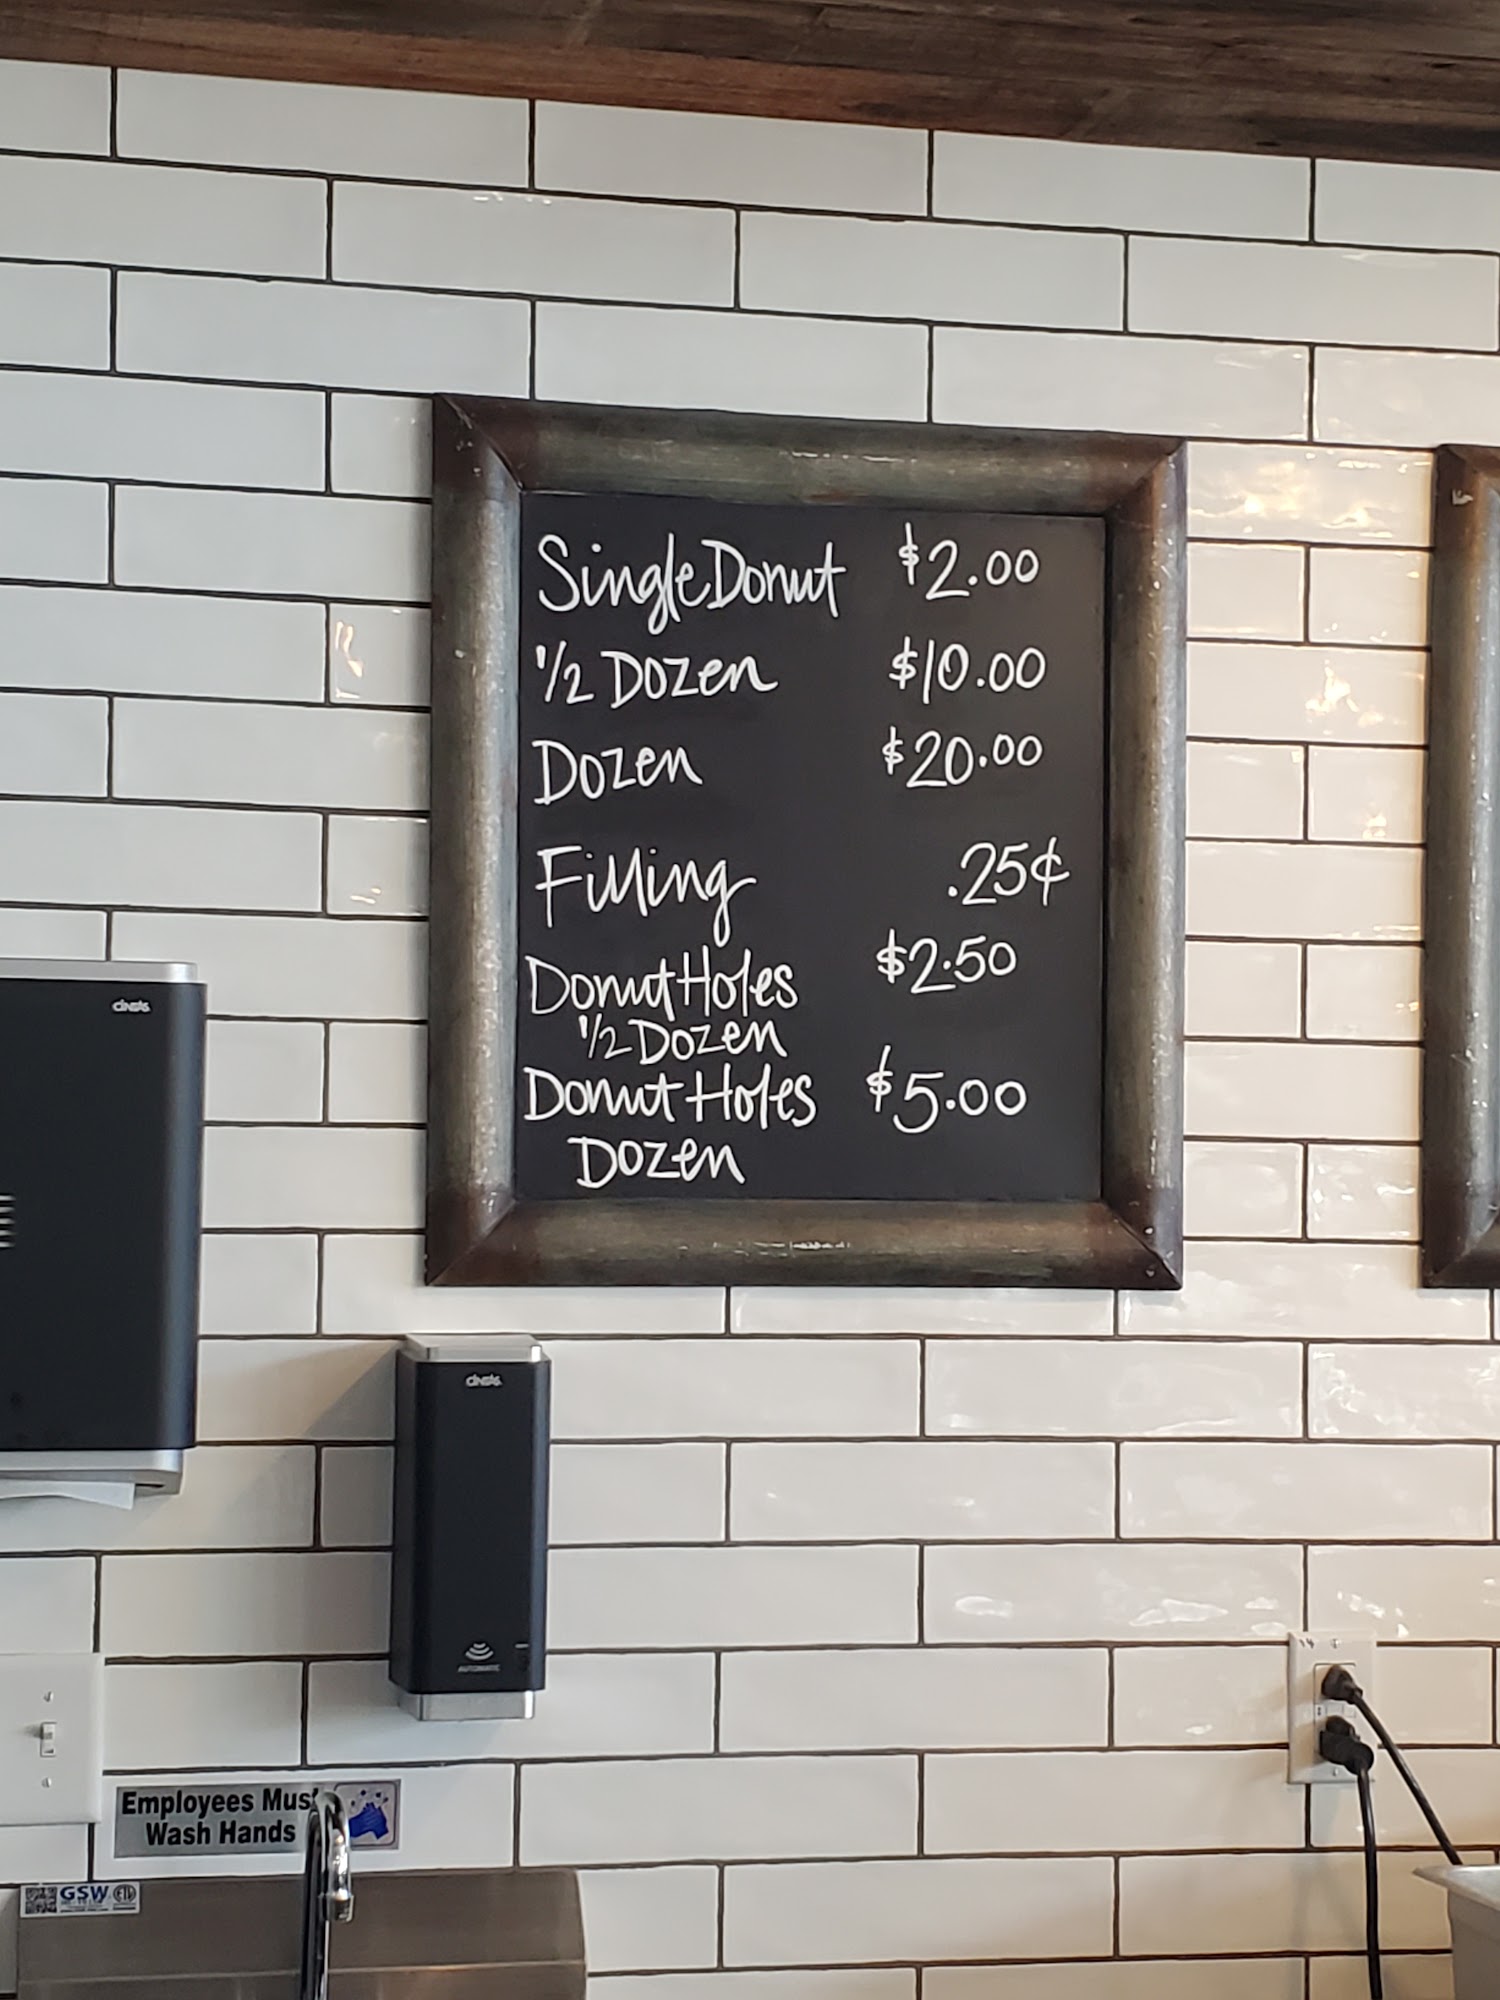 Single Donut $2.00
1/2 Dozen $10.00
Dozen $20.00
Filling .25¢
Donut Holes $2.50
1/2 Dozen
Donut Holes $5.00
Dozen
CINTAS
CINTAS
AUTOMATIC
Employees Must
Wash Hands
GSW